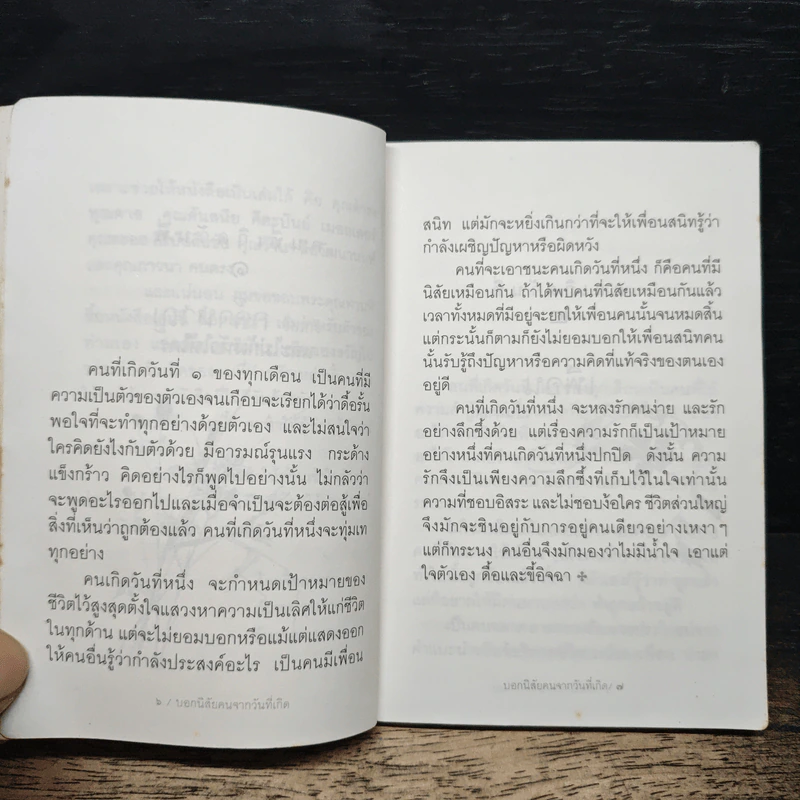 คนที่เกิดวันที่ ๑ ของทุกเดือน เป็นคนที่มี
ความเป็นตัวของตัวเองจนเกือบจะเรียกได้ว่าดื้อรั้น
พอใจที่จะทำทุกอย่างด้วยตัวเอง และไม่สนใจว่า
ใครคิดยังไงกับตัวด้วย มีอารมณ์รุนแรง กระด้าง
แข็งกร้าว คิดอย่างไรก็พูดไปอย่างนั้น ไม่กลัวว่า
จะพูดอะไรออกไปและเมื่อจำเป็นจะต้องต่อสู้เพื่อ
สิ่งที่เห็นว่าถูกต้องแล้ว คนที่เกิดวันที่หนึ่งจะทุ่มเท
ทุกอย่าง
คนเกิดวันที่หนึ่ง จะกำหนดเป้าหมายของ
ชีวิตไว้สูงสุดตั้งใจแสวงหาความเป็นเลิศให้แก่ชีวิต
ในทุกด้าน แต่จะไม่ยอมบอกหรือแม้แต่แสดงออก
ให้คนอื่นรู้ว่ากำลังประสงค์อะไร เป็นคนมีเพื่อน
๖ / บอกนิสัยคนจากวันที่เกิด
สนิท แต่มักจะหยิ่งเกินกว่าที่จะให้เพื่อนสนิทรู้ว่า
กำลังเผชิญปัญหาหรือผิดหวัง
คนที่จะเอาชนะคนเกิดวันที่หนึ่ง ก็คือคนที่มี
นิสัยเหมือนกัน ถ้าได้พบคนที่นิสัยเหมือนกันแล้ว
เวลาทั้งหมดที่มีอยู่จะยกให้เพื่อนคนนั้นจนหมดสิ้น
แต่กระนั้นก็ตามก็ยังไม่ยอมบอกให้เพื่อนสนิทคน
นั้นรับรู้ถึงปัญหาหรือความคิดที่แท้จริงของตนเอง
อยู่ดี
คนที่เกิดวันที่หนึ่ง จะหลงรักคนง่าย และรัก
อย่างลึกซึ้งด้วย แต่เรื่องความรักก็เป็นเป้าหมาย
อย่างหนึ่งที่คนเกิดวันที่หนึ่งปกปิด ดังนั้น ความ
รักจึงเป็นเพียงความลึกซึ้งที่เก็บไว้ในใจเท่านั้น
ความที่ชอบอิสระ และไม่ชอบง้อใคร ชีวิตส่วนใหญ่
จึงมักจะชินอยู่กับการอยู่คนเดียวอย่างเหงา ๆ
แต่ก็ทระนง คนอื่นจึงมักมองว่าไม่มีน้ำใจ เอาแต่
ใจตัวเอง ดื้อและขี้อิจฉา ✢
บอกนิสัยคนจากวันที่เกิด/ ๗